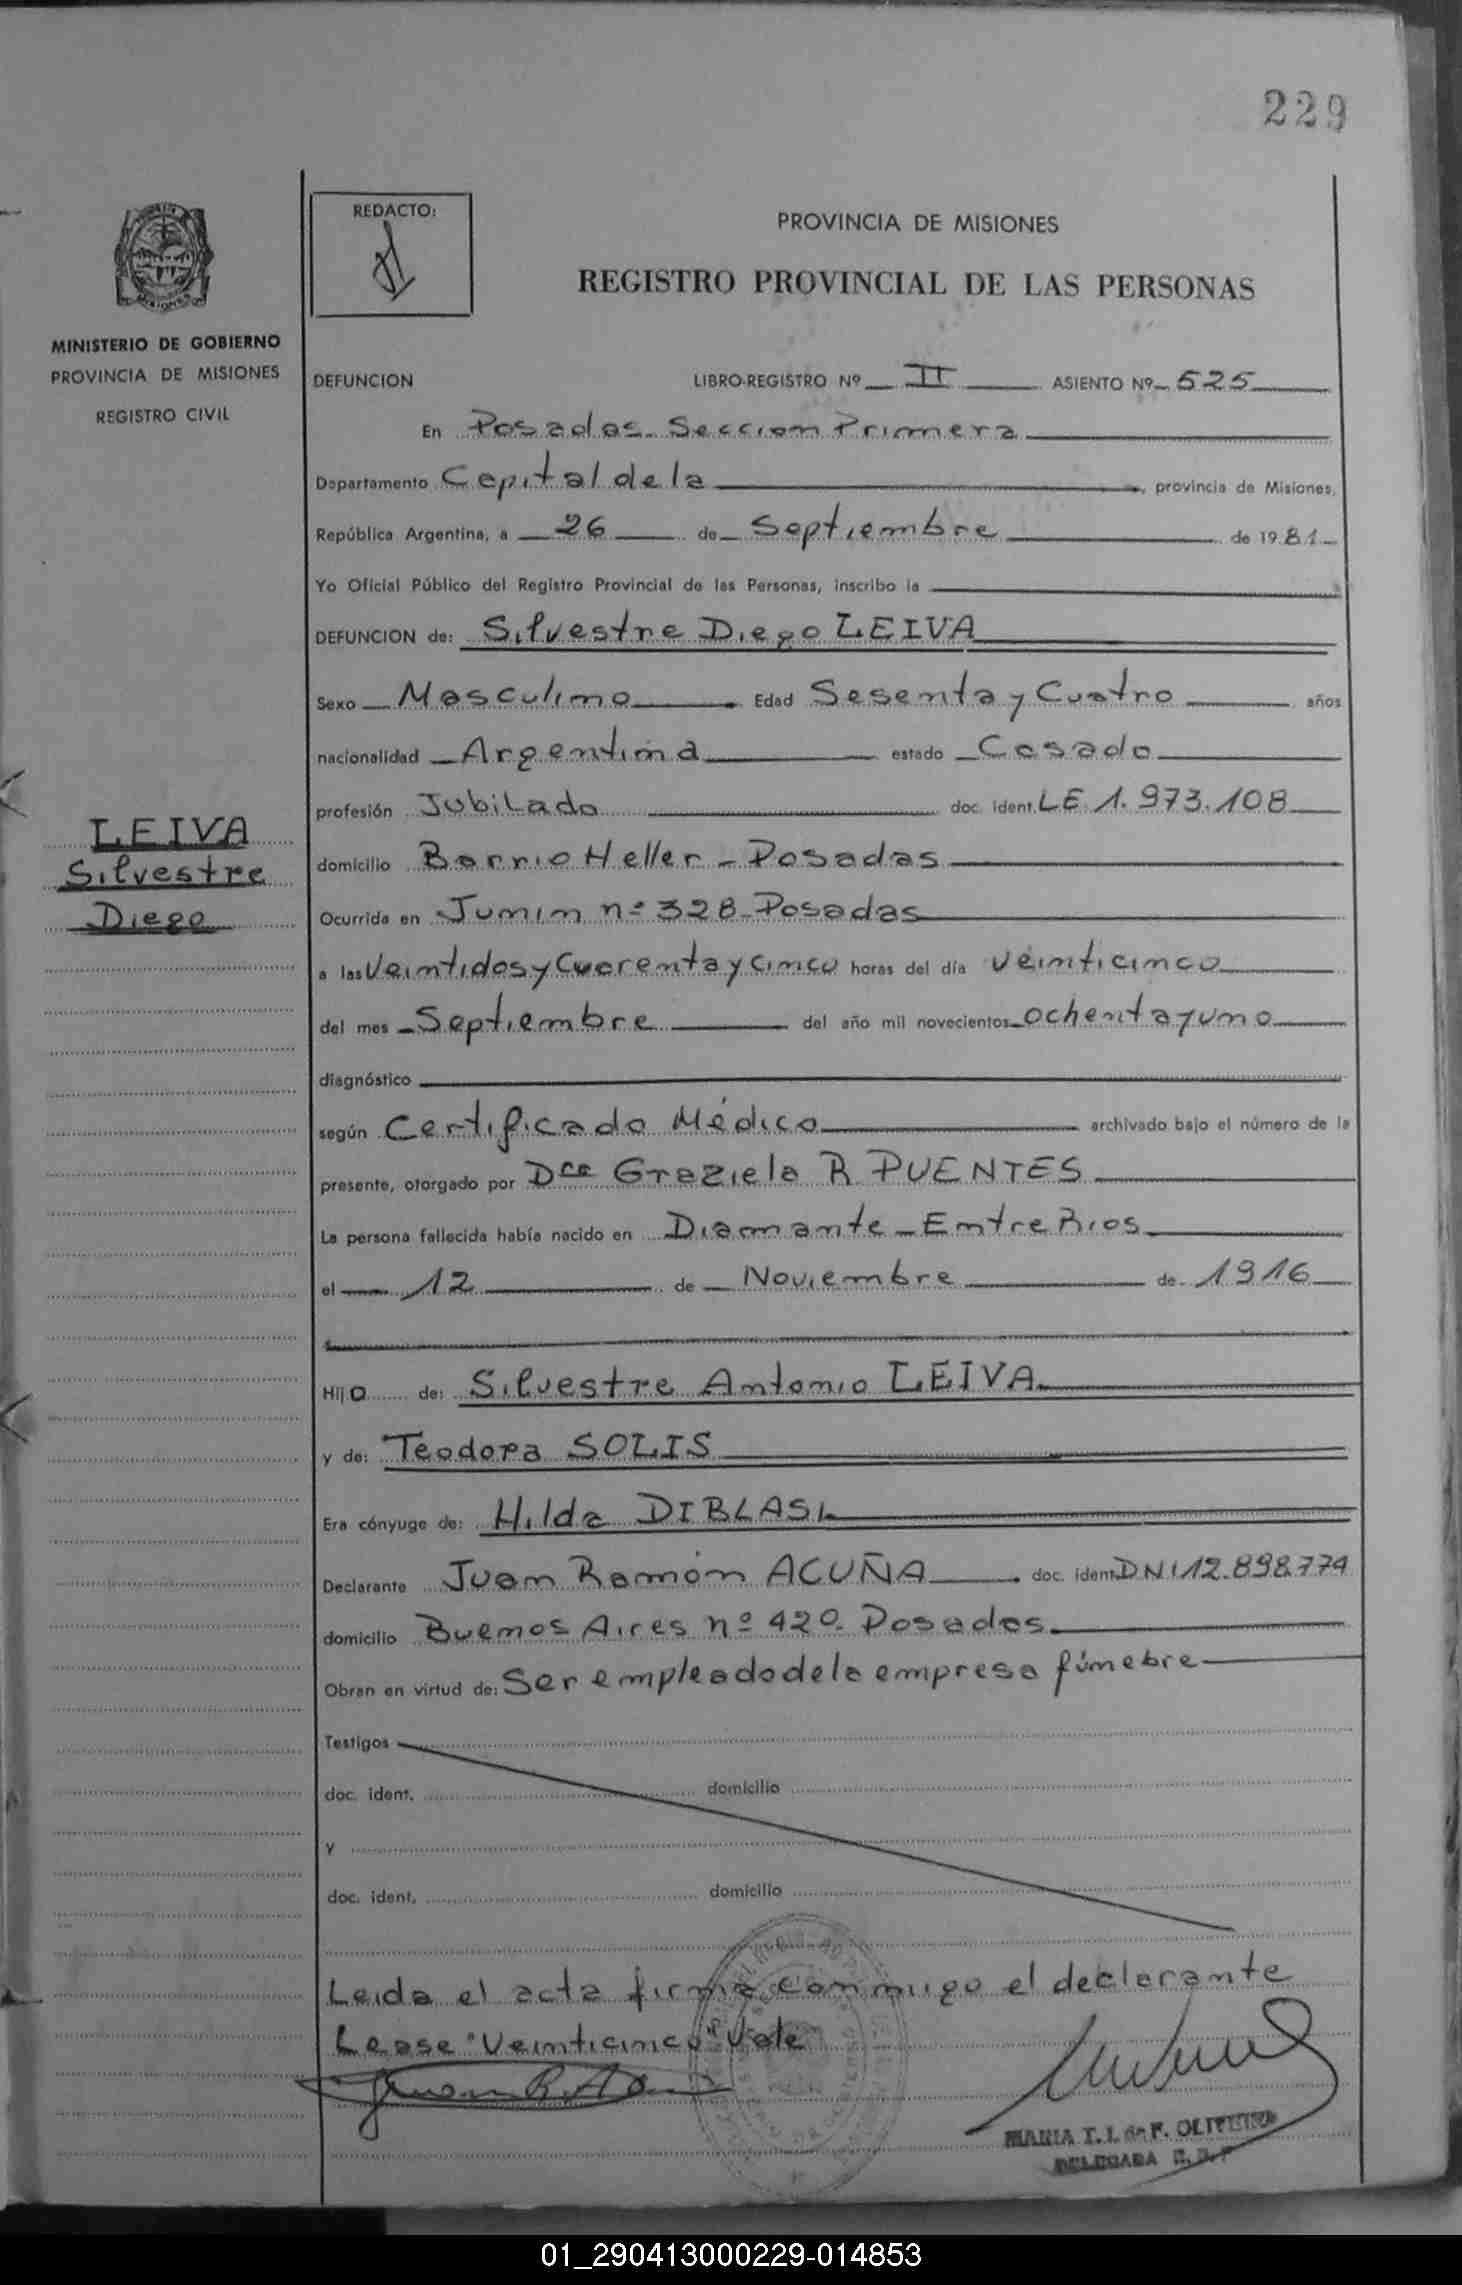 229
REDACTO:
PROVINCIA DE MISIONES
REGISTRO PROVINCIAL DE LAS PERSONAS
MINISTERIO DE GOBIERNO
PROVINCIA DE MISIONES
REGISTRO CIVIL
DEFUNCION LIBRO-REGISTRO Nº II ASIENTO Nº 525
En Posadas Seccion Primera
Departamento Capital de la provincia de Misiones,
República Argentina, a 26 de Septiembre de 1981
Yo Oficial Público del Registro Provincial de las Personas, inscribo la
DEFUNCION de: Silvestre Diego LEIVA
Sexo Masculino Edad Sesenta y Cuatro años
nacionalidad Argentina estado Casado
profesión Jubilado doc. ident. LE 1.973.108
LEIVA
Silvestre
Diego
domicilio Barrio Heller - Posadas
Ocurrida en Junin nº 328 - Posadas
a las Veintidos y Cuarenta y Cinco horas del día veinticinco
del mes Septiembre del año mil novecientos ochenta y uno
diagnóstico
según Certificado Médico archivado bajo el número de la
presente, otorgado por Dra Graziela R PUENTES
La persona fallecida había nacido en Diamante - Entre Rios
el 12 de Noviembre de 1916
Hijo de: Silvestre Antonio LEIVA
y de: Teodora SOLIS
Era cónyuge de: Hilda DIBLASI
Declarante Juan Ramón ACUÑA doc. ident. DNI 12.898.774
domicilio Buenos Aires nº 420. Posadas
Obran en virtud de: Ser empleado de la empresa fúnebre
Testigos
doc. ident. domicilio
y
doc. ident. domicilio
Leida el acta firma conmigo el declarante
Lease "Veinticinco" Vale
MARIA T. I. de F. OLIVEIRA
DELEGADA
01_290413000229-014853